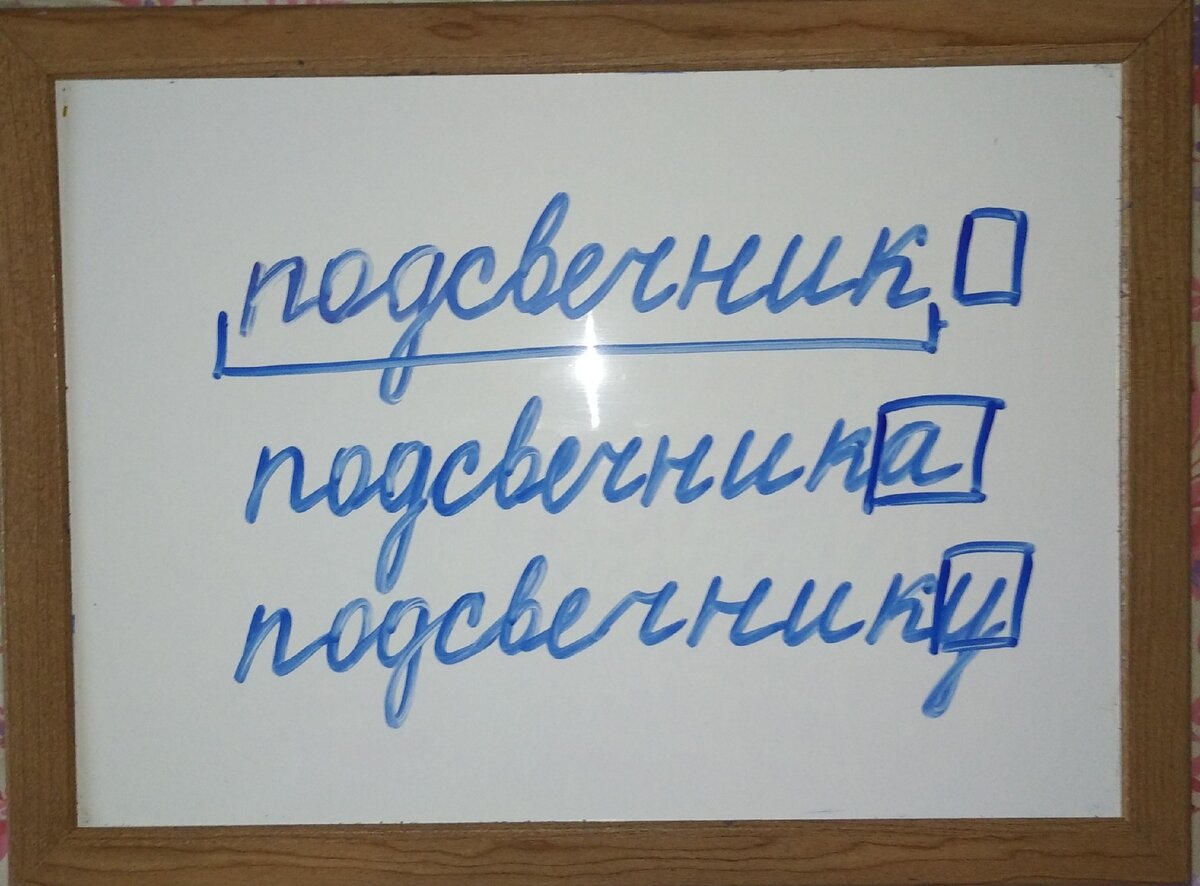 подсвечник
подсвечника
подсвечнику